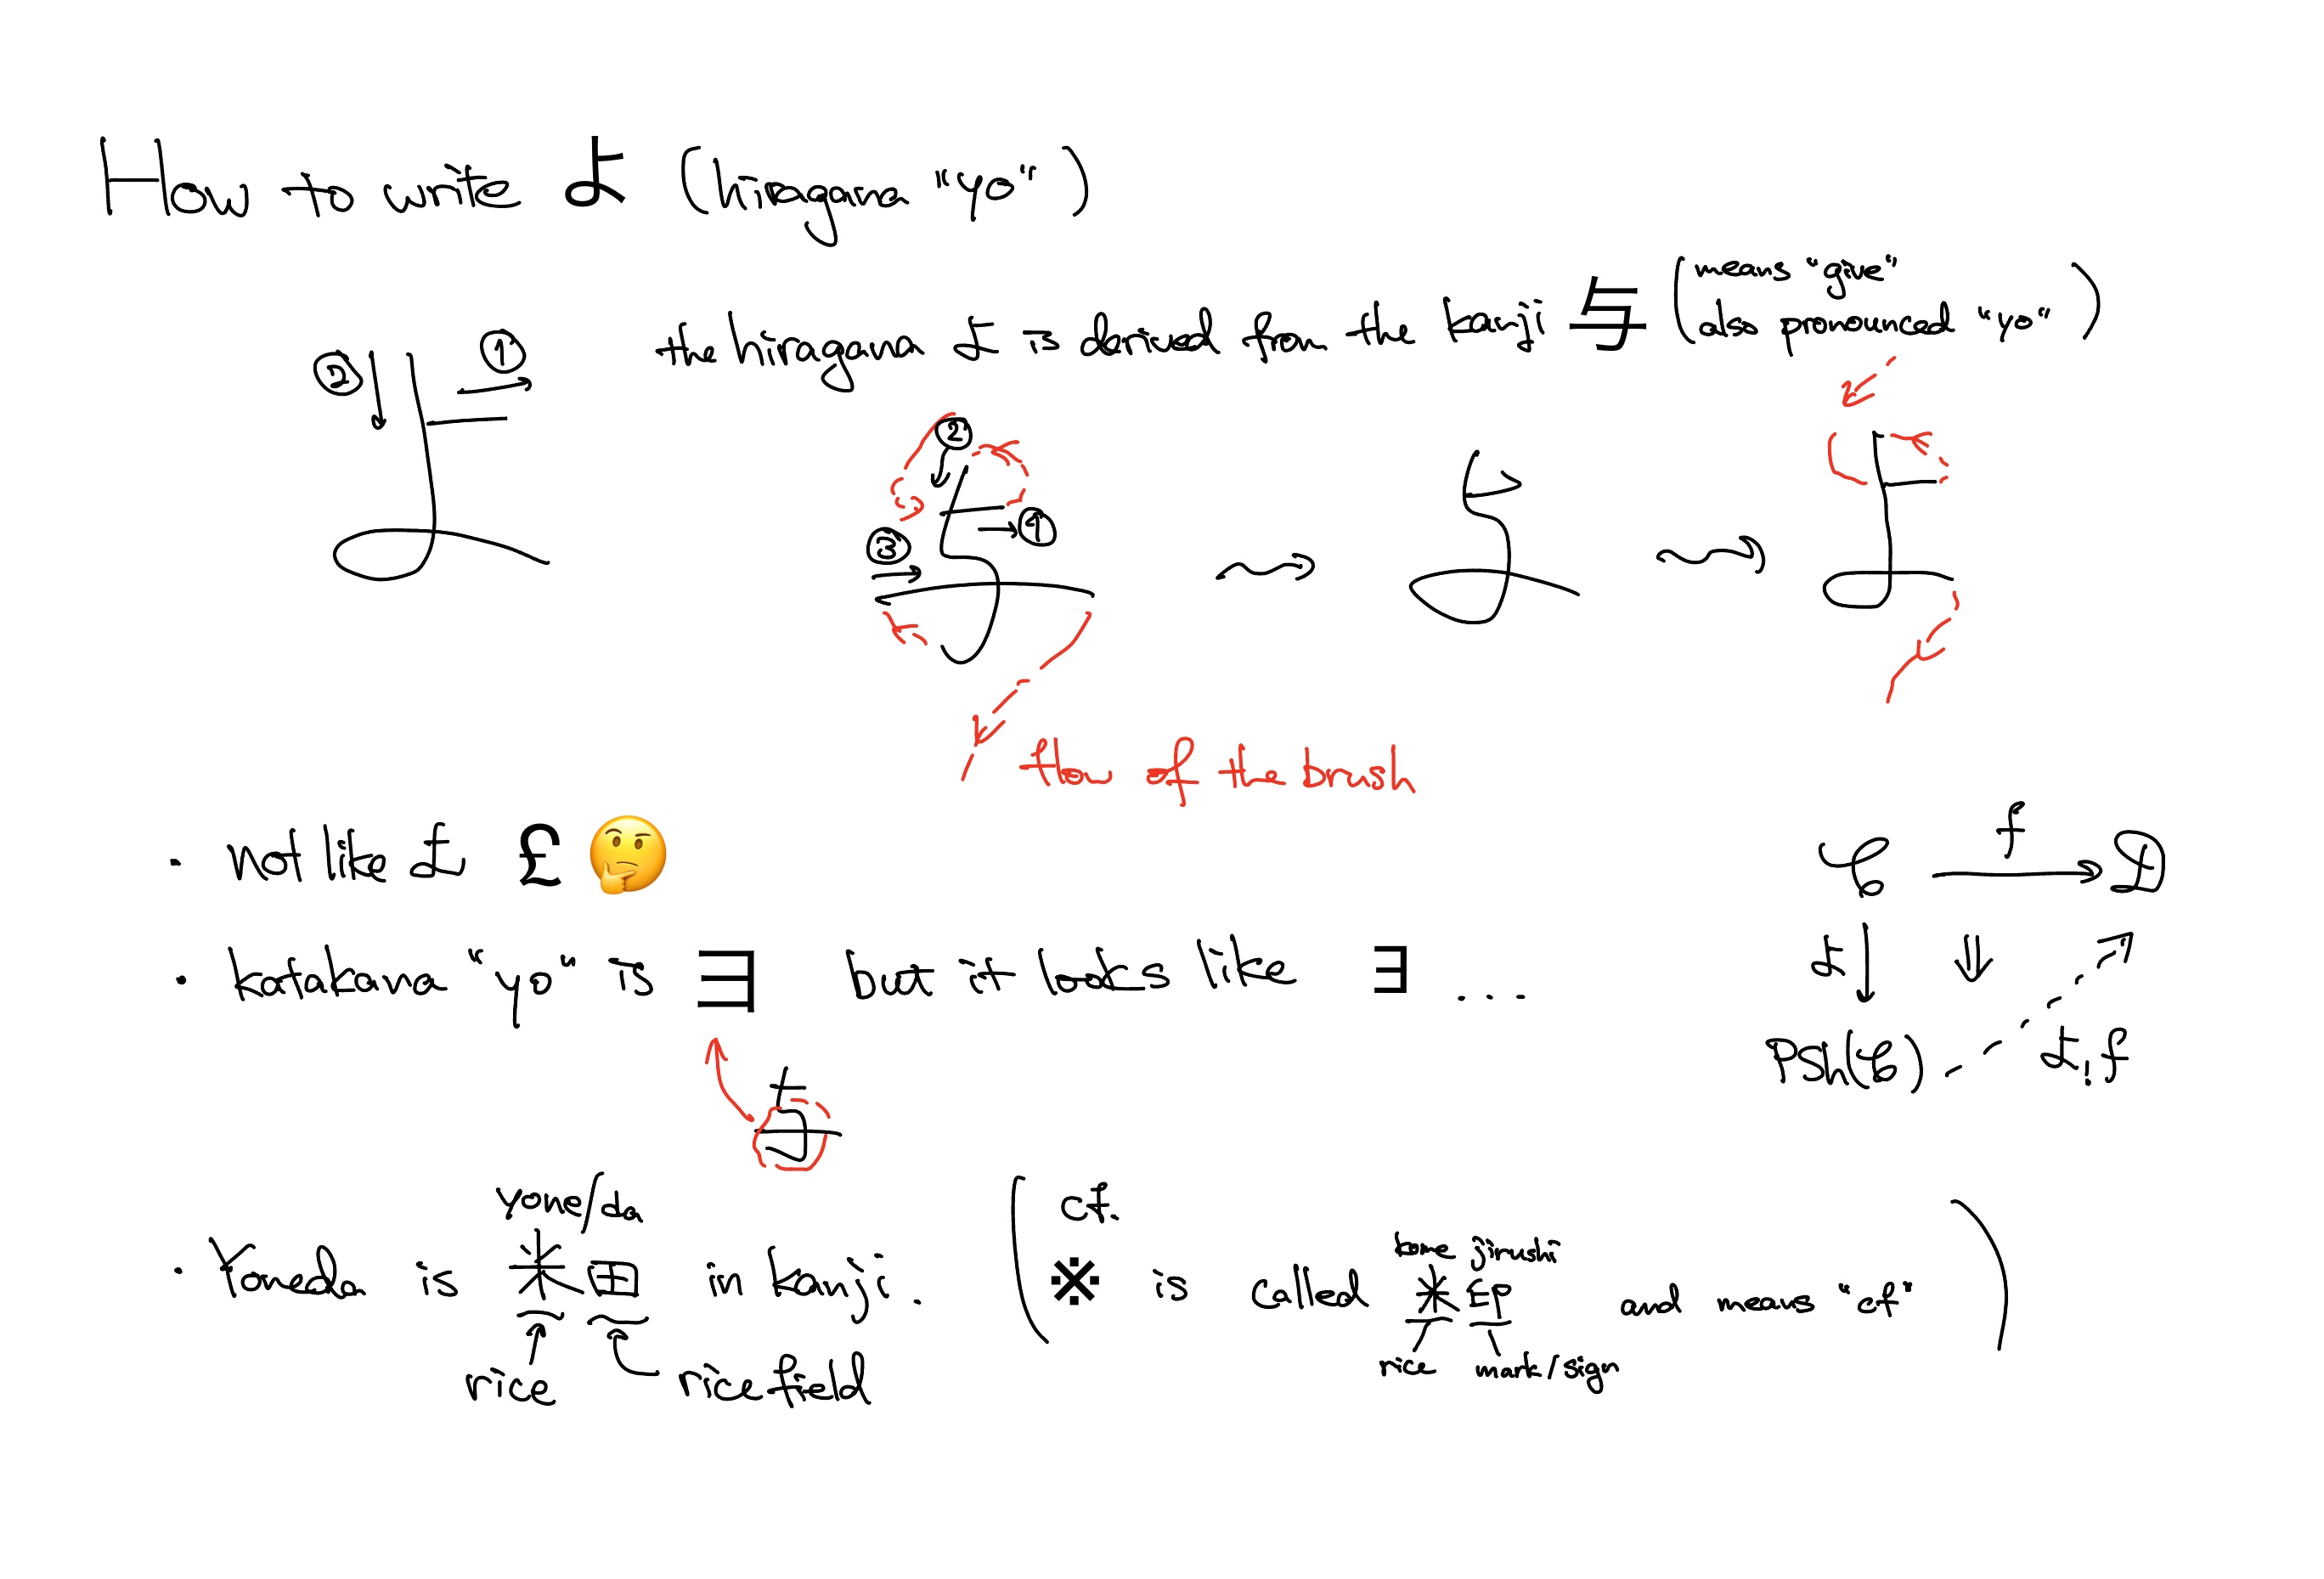 How to write よ (hiragana "yo")
the hiragana よ is derived from the kanji 与 (means "give" also pronounced "yo")
② ①
② ① ③
flow of the brush
• Not like よ £ 🤔
• katakana "yo" is ヨ but it looks like ∃ ...
与
C f D
よ ⇓
PSh(C) よ! f
yone/da
• Yoneda is 米田 in kanji.
rice rice field
( cf.
kome jirushi
※ is called 米印 and means "cf" )
rice mark/sign